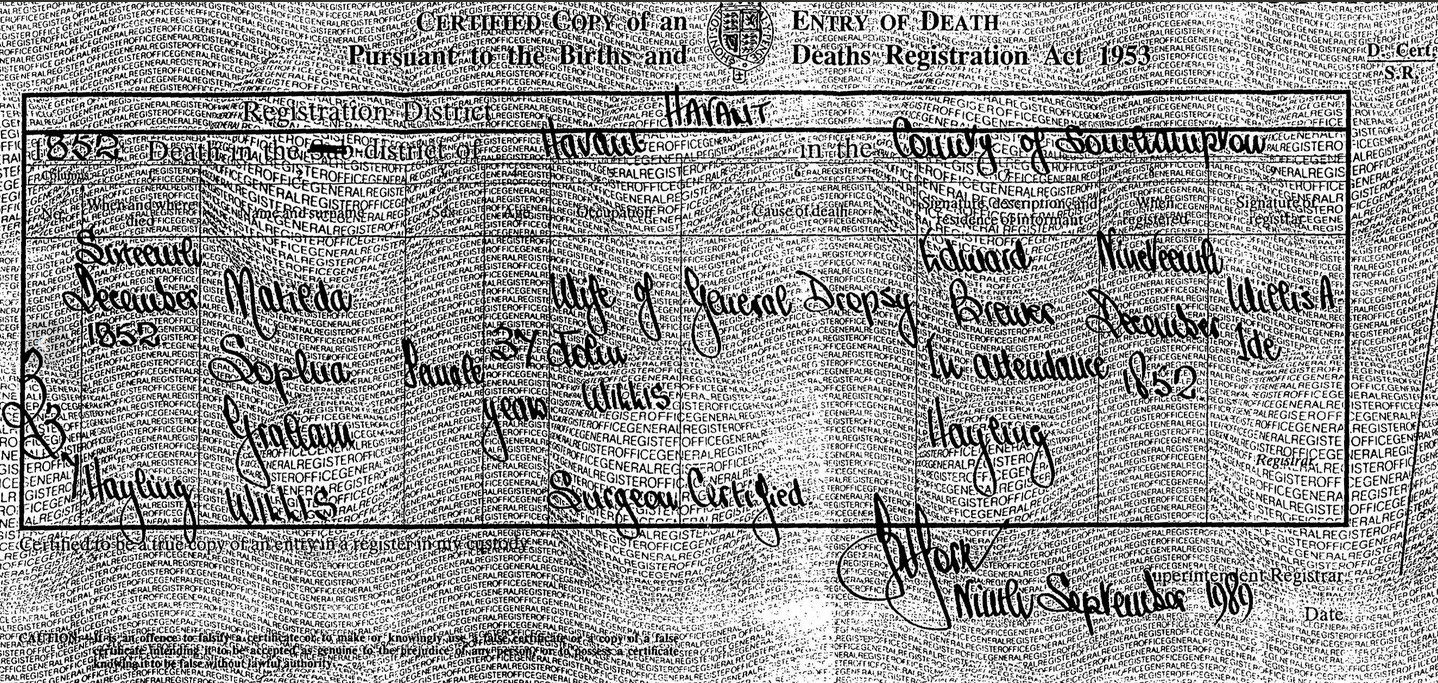 CERTIFIED COPY of an ENTRY OF DEATH
Pursuant to the Births and Deaths Registration Act 1953
D. Cert.
S.R.
Registration District HAVANT
1852 Death in the Sub-district of Havant in the County of Southampton
Columns
No.
When and where died
Name and surname
Sex
Age
Occupation
Cause of death
Signature, description, and residence of informant
When registered
Signature of registrar
Sixteenth
December
1852
Hayling
Matilda
Sophia
Graham
Willis
Female
37
years
Wife of
John
Willis
Surgeon
General Dropsy
Certified
Edward
Brewer
In attendance
Hayling
Nineteenth
December
1852.
Willis A
Ide
Registrar
Certified to be a true copy of an entry in a register in my custody.
Superintendent Registrar
Ninth September 1989
Date
CAUTION:—It is an offence to falsify a certificate or to make or knowingly use a false certificate or a copy of a false
certificate intending it to be accepted as genuine to the prejudice of any person, or to possess a certificate
knowing it to be false without lawful authority.